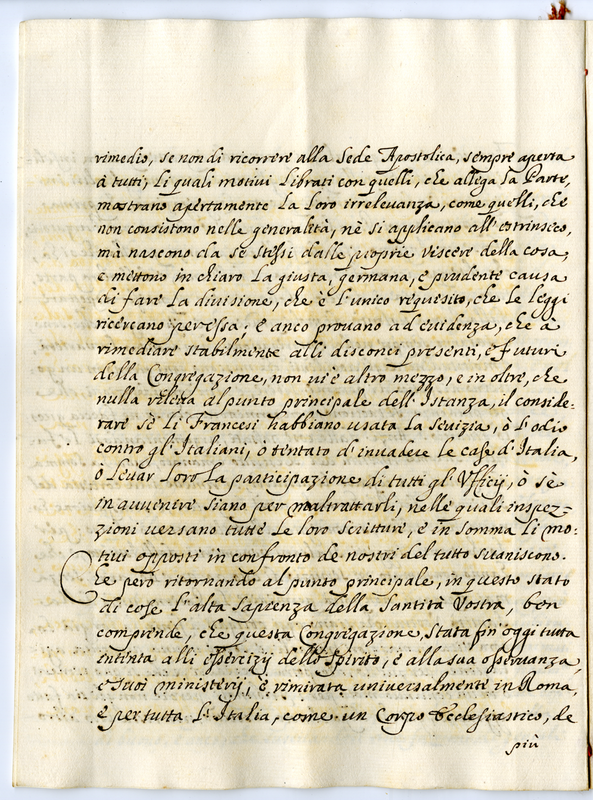 rimedio, se non di ricorrere alla Sede Apostolica, sempre aperta
à tutti, Li quali motivi Librati con quelli, che allega La Parte,
mostrano apertamente La Loro irrelevanza, come quelli, che
non consistono nelle generalità, nè si applicano all'estrinseco,
mà nascono da se stessi dalle proprie viscere della cosa,
e mettono in chiaro La giusta, germana, e prudente causa
di fare La divisione, che è l'unico requesito, che le leggi
ricercano per essa; e anco provano ad evidenza, che a
rimediare stabilmente alli disconci presenti, e futuri
della Congregazione, non vi è altro mezzo, e in oltre, che
nulla rileva al punto principale dell'Istanza, il conside-
rare sè Li Francesi habbiano usata La Sevizia, ò l'odio
contro gl'Italiani, ò tentato d'invadere le case d'Italia,
ò Levar Loro La participazione di tutti gl'Vfficij, ò sè
in avvenire siano per maltrattarli, nelle quali inspez-
zioni versano tutte Le loro Scritture, e in somma Li mo-
tivi opposti in confronto de nostri del tutto svaniscono.
Che però ritornando al punto principale, in questo stato
di cose l'alta Sapienza della Santità Vostra, ben
comprende, che questa Congregazione, stata fin'oggi tutta
intenta alli essercizij dello Spirito, e alla sua osservanza,
e suoi ministerij, è rimirata universalmente in Roma,
e per tutta L'Italia, come un Corpo Ecclesiastico, de
più